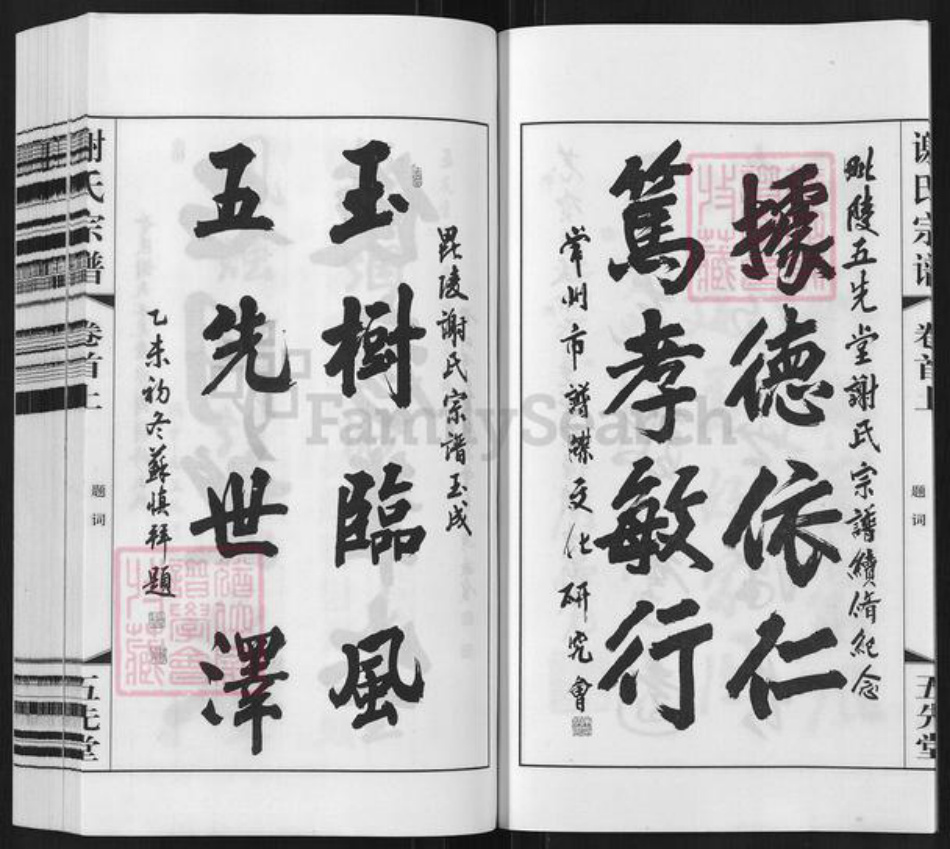 毗陵五先堂謝氏宗譜續脩紀念
據德依仁
篤孝敏行
常州市譜牒文化研究會
謝氏宗譜
卷首上
题词
五先堂
毘陵謝氏宗譜玉成
玉樹臨風
五先世澤
乙未初冬蘇慎拜題
謝氏宗譜
卷首上
题词
五先堂
FamilySearch